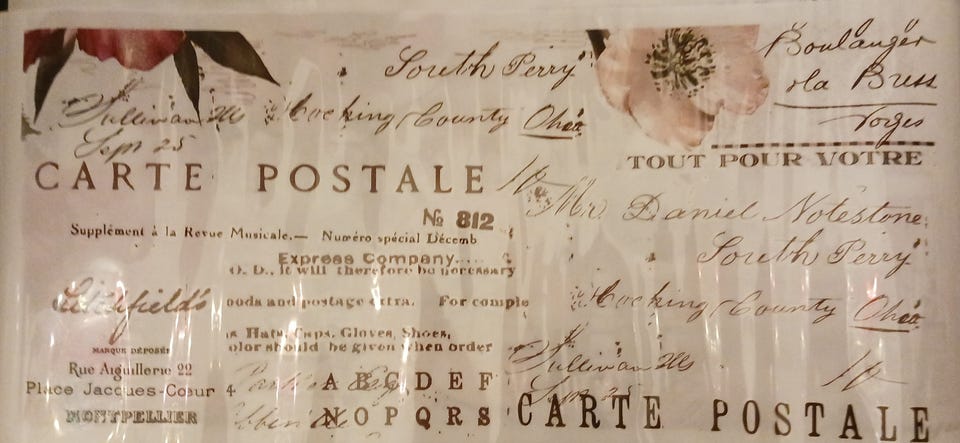 South Perry
Boulanger
Sullivan Ills
Hocking County Ohio
la Bress
Sepn 25
Vosges
TOUT POUR VOTRE
CARTE POSTALE
10
Mr Daniel Notestone
No 812
Supplément à la Revue Musicale.— Numéro spécial Décemb
South Perry
Express Company.....
O. D., it will therefore be necessary
Litchfield's
oods and postage extra. For comple
Hocking County Ohio
s Hats, Caps, Gloves, Shoes,
olor should be given when order
MARQUE DÉPOSÉE
Sullivan Ills
Rue Aiguillerie 22
10
Place Jacques-Cœur 4
A B C D E F
Sepn 25
MONTPELLIER
N O P Q R S
CARTE POSTALE